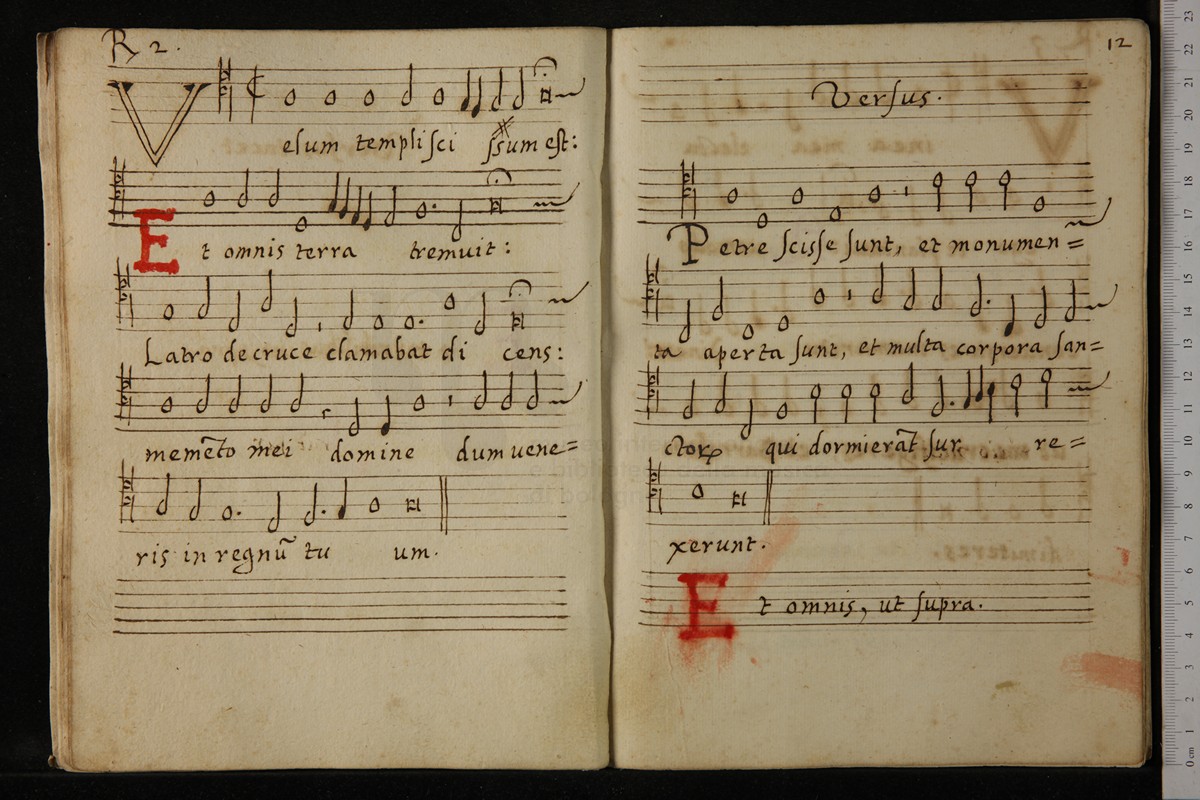 R 2.
Velum templi sci ssum est:
Et omnis terra tremuit:
Latro de cruce clamabat di cens:
memẽto mei domine dum vene=
ris in regnũ tu um.
12
Versus.
Petre scisse sunt, et monumen=
ta aperta sunt, et multa corpora san=
ctoꝝ qui dormierãt sur re=
xerunt.
Et omnis, ut supra.